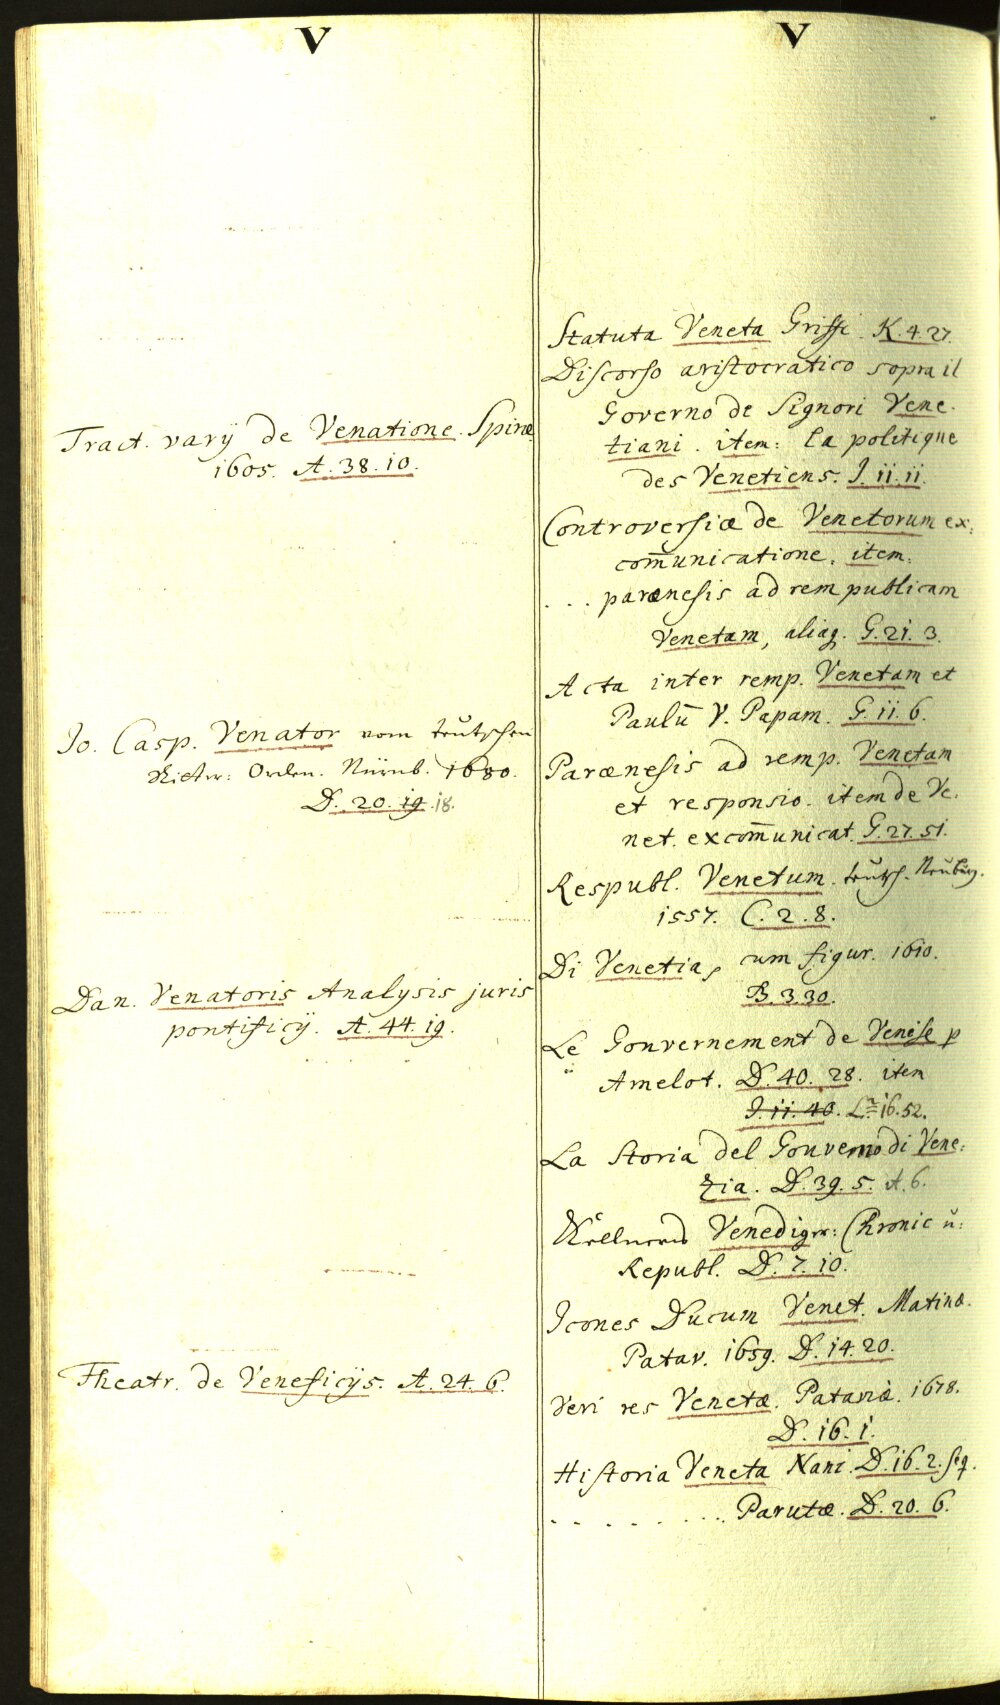 V
Tract. varÿ de Venatione. Spiræ
1605. A. 38. 10.
Jo. Casp. Venator vom teutschen
Ritter: Orden. Nürnb. 1680.
D. 20. 19. 18.
Dan. Venatoris Analysis juris
pontificÿ. A. 44. 19.
Theatr. de Veneficÿs. A. 24. 6.
V
Statuta Veneta Griffi. K. 4. 27.
Discorso aristocratico sopra il
Governo de Signori Vene-
tiani. item: la politique
des Venetiens. J. 11. 11.
Controversiæ de Venetorum ex:
com̄unicatione. item.
... parænesis ad rem publicam
Venetam, aliaq. G. 21. 3.
Acta inter remp. Venetam et
Paulū V. Papam. G. 11. 6.
Parænesis ad remp. Venetam
et responsio. item de Ve-
net. excom̄unicat. G. 27. 51.
Respubl. Venetum. teutsch. Neuburg.
1557. C. 2. 8.
Di Venetia, cum figur. 1610.
B. 3. 30.
Le Gouvernement de Venise p
Amelot. D. 40. 28. item
J. 11. 40. L. 16. 52.
La Storia del Gouverno di Vene:
zia. D. 39. 5. A. 6.
Kellners Venediger: Chronic ŭ:
Republ. D. 7. 10.
Icones Ducum Venet. Matinæ.
Patav. 1659. D. 14. 20.
Veri res Venetæ. Pataviæ. 1678.
D. 16. 1.
Historia Veneta Nani. D. 16. 2. seq.
. . . . . . . . Parutæ. D. 20. 6.